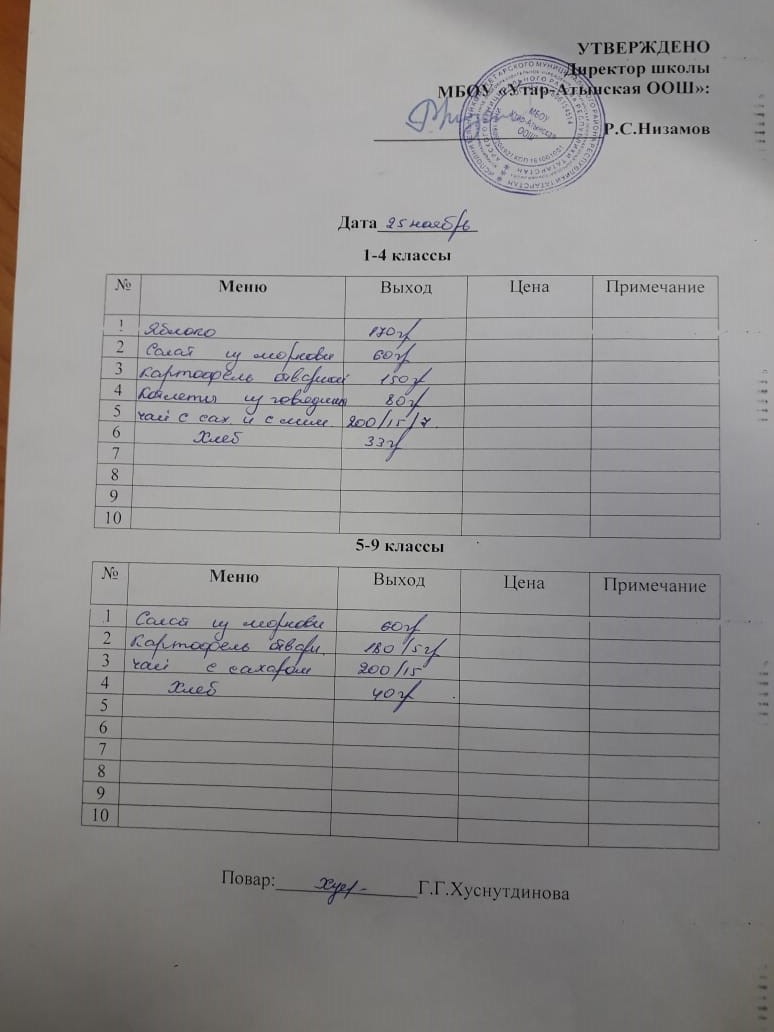 УТВЕРЖДЕНО
Директор школы
МБОУ «Утар-Атынская ООШ»:
Р.С.Низамов
Дата 25 ноябрь
1-4 классы
№ Меню Выход Цена Примечание
1 Яблоко 170г
2 Салат из моркови 60г
3 Картофель отварной 150г
4 Котлеты из говядины 80г
5 чай с сах. и с лим. 200/15/7.
6 Хлеб 33г
7
8
9
10
5-9 классы
№ Меню Выход Цена Примечание
1 Салат из моркови 60г
2 Картофель отварн. 180/5г
3 чай с сахаром 200/15
4 Хлеб 40г
5
6
7
8
9
10
Повар: Г.Г.Хуснутдинова